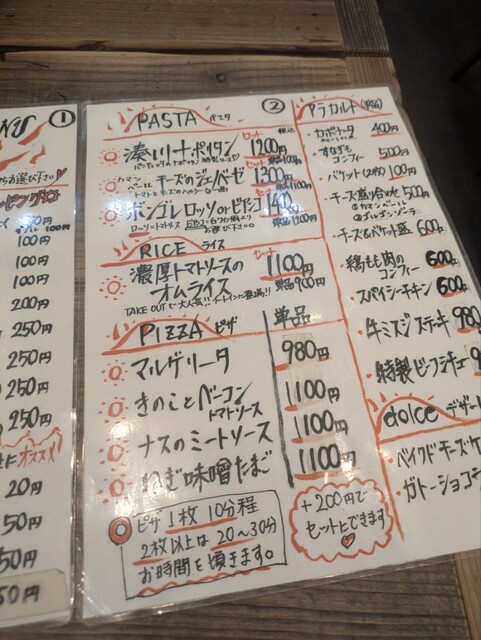 ①
お選び下さい♥
100円
100円
100円
200円
250円
250円
250円
250円
オススメ
20円
50円
50円
50円
PASTA パスタ ②
セット 税込
湊川ナポリタン 1200円
セット
カマンベール チーズのジェノベーゼ 1300円
セット
ボンゴレロッソorビアンコ 1400円
お選び下さい。
RICE ライス
セット
濃厚トマトソースの
オムライス 1100円
単品900円
TAKE OUTで大人気!! イートインで登場!!
PIZZA ピザ 単品
マルゲリータ 980円
きのことベーコン
トマトソース 1100円
ナスのミートソース 1100円
ねぎ味噌たまご 1100円
ピザ1枚10分程
2枚以上は20〜30分
お時間を頂きます。
+200円で
セットにできます
アラカルト(単品)
カポナータ 400円
すなぎも
コンフィー 500円
バケット(2枚) 100円
チーズ盛り合わせ 500円
②カマンベール
②ゴルゴンゾーラ
チーズ&バケット盛 600円
鶏もも肉の
コンフィー 600円
スパイシーチキン 600円
牛ミスジステーキ 980
特製ビーフシチュー
dolce デザート
・ベイクドチーズケ
・ガトーショコラ